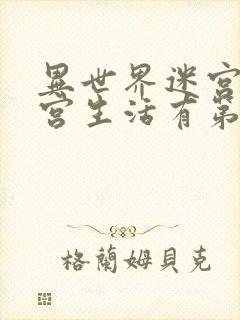 異世界迷宮
宮生活有第
格蘭姆貝克